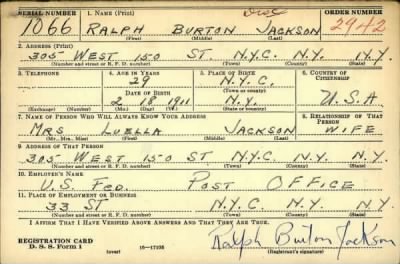 SERIAL NUMBER 1. NAME (Print) ORDER NUMBER
1066 RALPH BURTON JACKSON 2942
(First) (Middle) (Last)
2. ADDRESS (Print)
305 WEST 150 ST. N.Y.C. N.Y. N.Y.
(Number and street or R. F. D. number) (Town) (County) (State)
3. TELEPHONE 4. AGE IN YEARS 5. PLACE OF BIRTH 6. COUNTRY OF CITIZENSHIP
29 N.Y.C.
DATE OF BIRTH (Town or county)
2 18 1911 N.Y. U.S.A
(Exchange) (Number) (Mo.) (Day) (Yr.) (State or country)
7. NAME OF PERSON WHO WILL ALWAYS KNOW YOUR ADDRESS 8. RELATIONSHIP OF THAT PERSON
MRS LUELLA JACKSON WIFE
(Mr., Mrs., Miss) (First) (Middle) (Last)
9. ADDRESS OF THAT PERSON
305 WEST 150 ST. N.Y.C. N.Y. N.Y.
(Number and street or R. F. D. number) (Town) (County) (State)
10. EMPLOYER'S NAME
U.S. FED. POST OFFICE
11. PLACE OF EMPLOYMENT OR BUSINESS
33 ST N.Y.C. N.Y. N.Y.
(Number and street or R. F. D. number) (Town) (County) (State)
I AFFIRM THAT I HAVE VERIFIED ABOVE ANSWERS AND THAT THEY ARE TRUE.
REGISTRATION CARD
D. S. S. FORM 1 (over) 16—17105 Ralph Burton Jackson
(Registrant's signature)